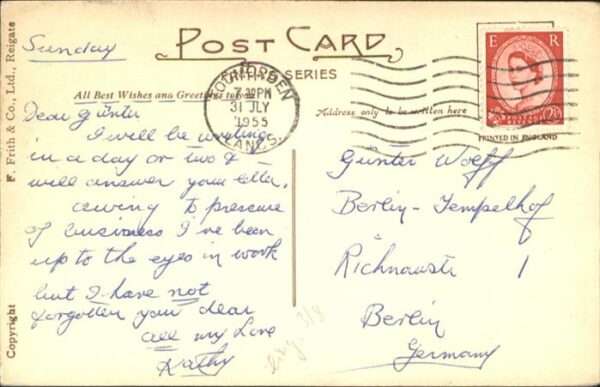 Sunday
POST CARD
SERIES
All Best Wishes and Greetings to
Dear Günter
I will be writing
in a day or two &
will answer your letter.
owing to pressure
of business I've been
up to the eyes in work
but I have not
forgotten you dear
all my Love
Kathy
F. Frith & Co., Ltd., Reigate
Copyright
TODMORDEN
7.30PM
31 JLY
1955
LANCS.
Address only to be written here
E R
PRINTED IN ENGLAND
Günter Wolff
Berlin-Tempelhof
Richnowstr 1
Berlin
Germany
3/8